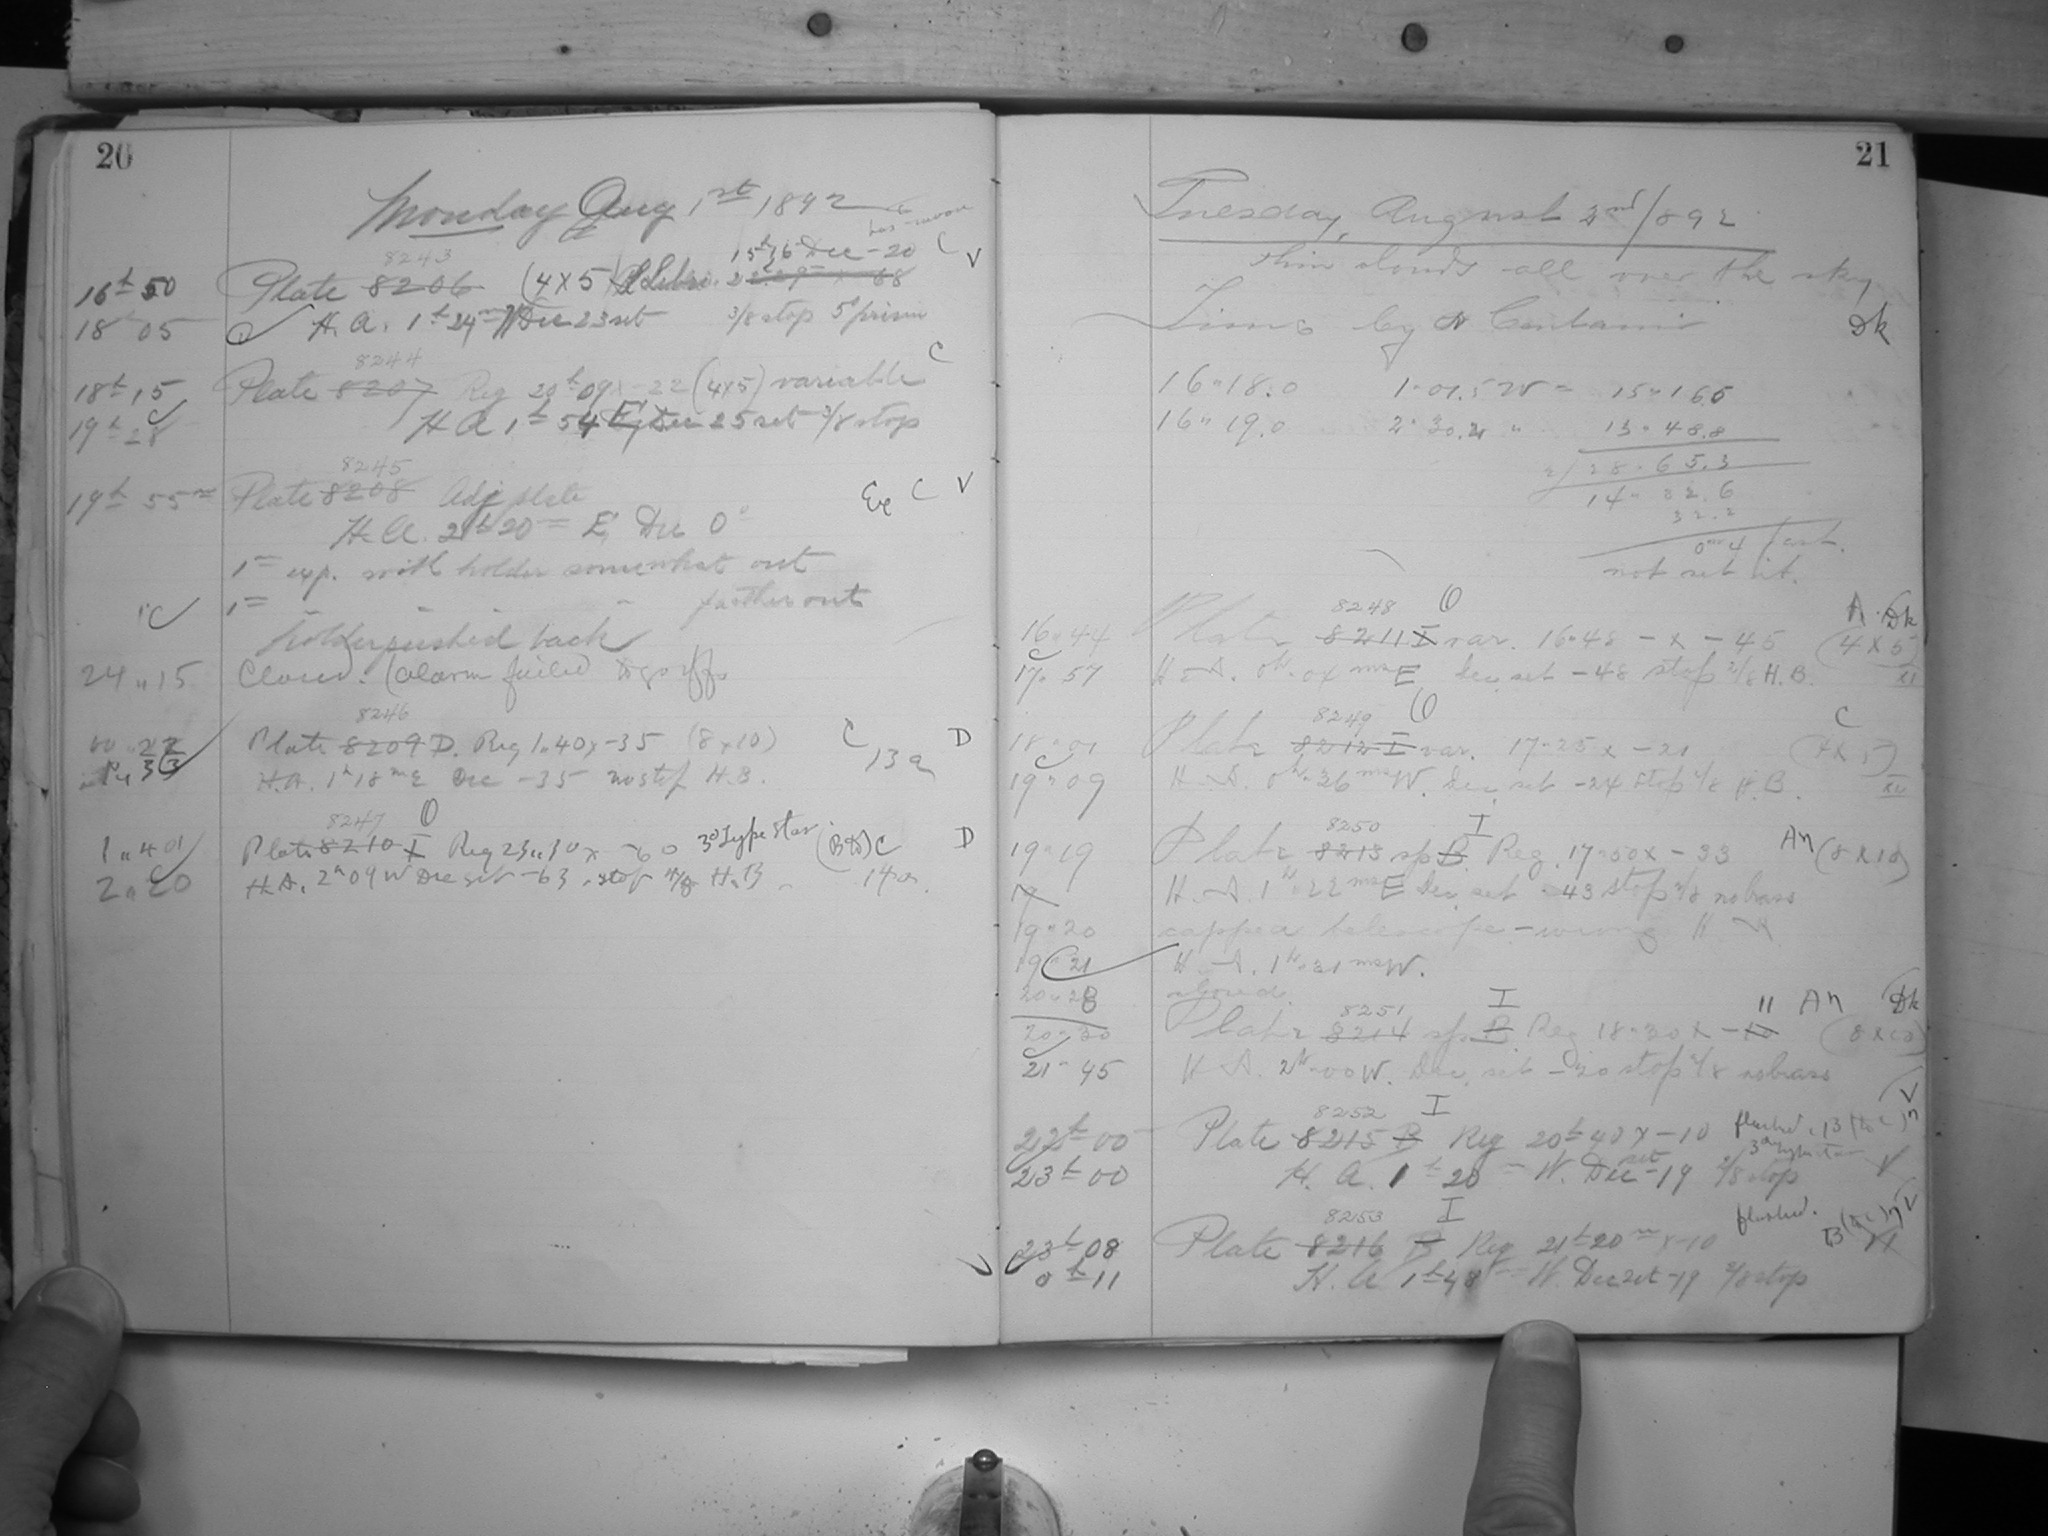 20
Monday Aug 1st 1892
has moon
8243 15h 16 Dec -20 C V
16h 50 Plate 8206 (4x5) Libr.
18 05 H. A. 1h 24m W Dec 23 set 3/8 stop 5° prism
8244 C
18h 15 Plate 8207 Reg 20h 09 x -22 (4x5) variable
19h 28 H A 1h 54 E, Dec 25 set 3/8 stop
8245
19h 55m Plate 8208 Adj plate C V
H. A. 2h 20m E, Dec 0°
1m exp. with holder somewhat out
1m " " " farther out
holder pushed back
24 " 15 Closed. (alarm failed to go off
8246
22 Plate 8209 D. Reg 1.40 x -35 (8x10) C 13a D
33 H.A. 1h 18m E Dec -35 no stop H.B.
8247 O
1 " 40 Plate 8210 I Reg 23 " 30 x -60 3d type star. C D
2 " 20 H.A. 2h 09 W Dec set -63, stop H.B. 14a.
21
Tuesday, August 2nd 1892
thin clouds all over the sky
Time by Centauri Dk
16 " 18.0 1 " 01.5 W = 15 " 16.5
16 " 19.0 2 " 30.2 " 13 " 48.8
2) 28 " 65.3
14 " 32.6
32.2
0m.4 fast.
not set it.
8248 O A. Dk
16 " 44 Plate 8211 I var. 16 " 48 - x - 45 (4x5)
17 " 57 H. A. 0h " 04 ms E Dec. set -48 stop 3/8 H.B.
8249 O C
18 " 01 Plate 8212 I var. 17 " 25 x -21 (4x5)
19 " 09 H. A. 0h " 36 ms W. Dec. set -24 stop 3/8 H.B.
8250 I An
19 " 19 Plate 8213 sp B Reg. 17 " 50 x -33 (8x10)
H. A. 1h " 22 ms E Dec. set -43 stop 3/8 no brass
19 " 20 capped telescope - wrong H A
19 " 21 H. A. 1h " 21 ms W.
20 " 28 closed.
8251 I 11 An Dk
20 " 30 Plate 8214 sp B Reg 18 " 30 x -10 (8x10)
21 " 45 H. A. 2h " 00 W. Dec. set -20 stop 3/8 no brass
8252 I V
22h 00 Plate 8215 B Reg 20h 40 x -10 flushed. B (to C)n
3d type star
23h 00 H. A. 1h 20m W. Dec set -19 3/8 stop V
8253 I flushed. B (to C)n V
23h 08 Plate 8216 B Reg 21h 20m x -10
0h 11 H. A 1h 48m W. Dec set -19 3/8 stop